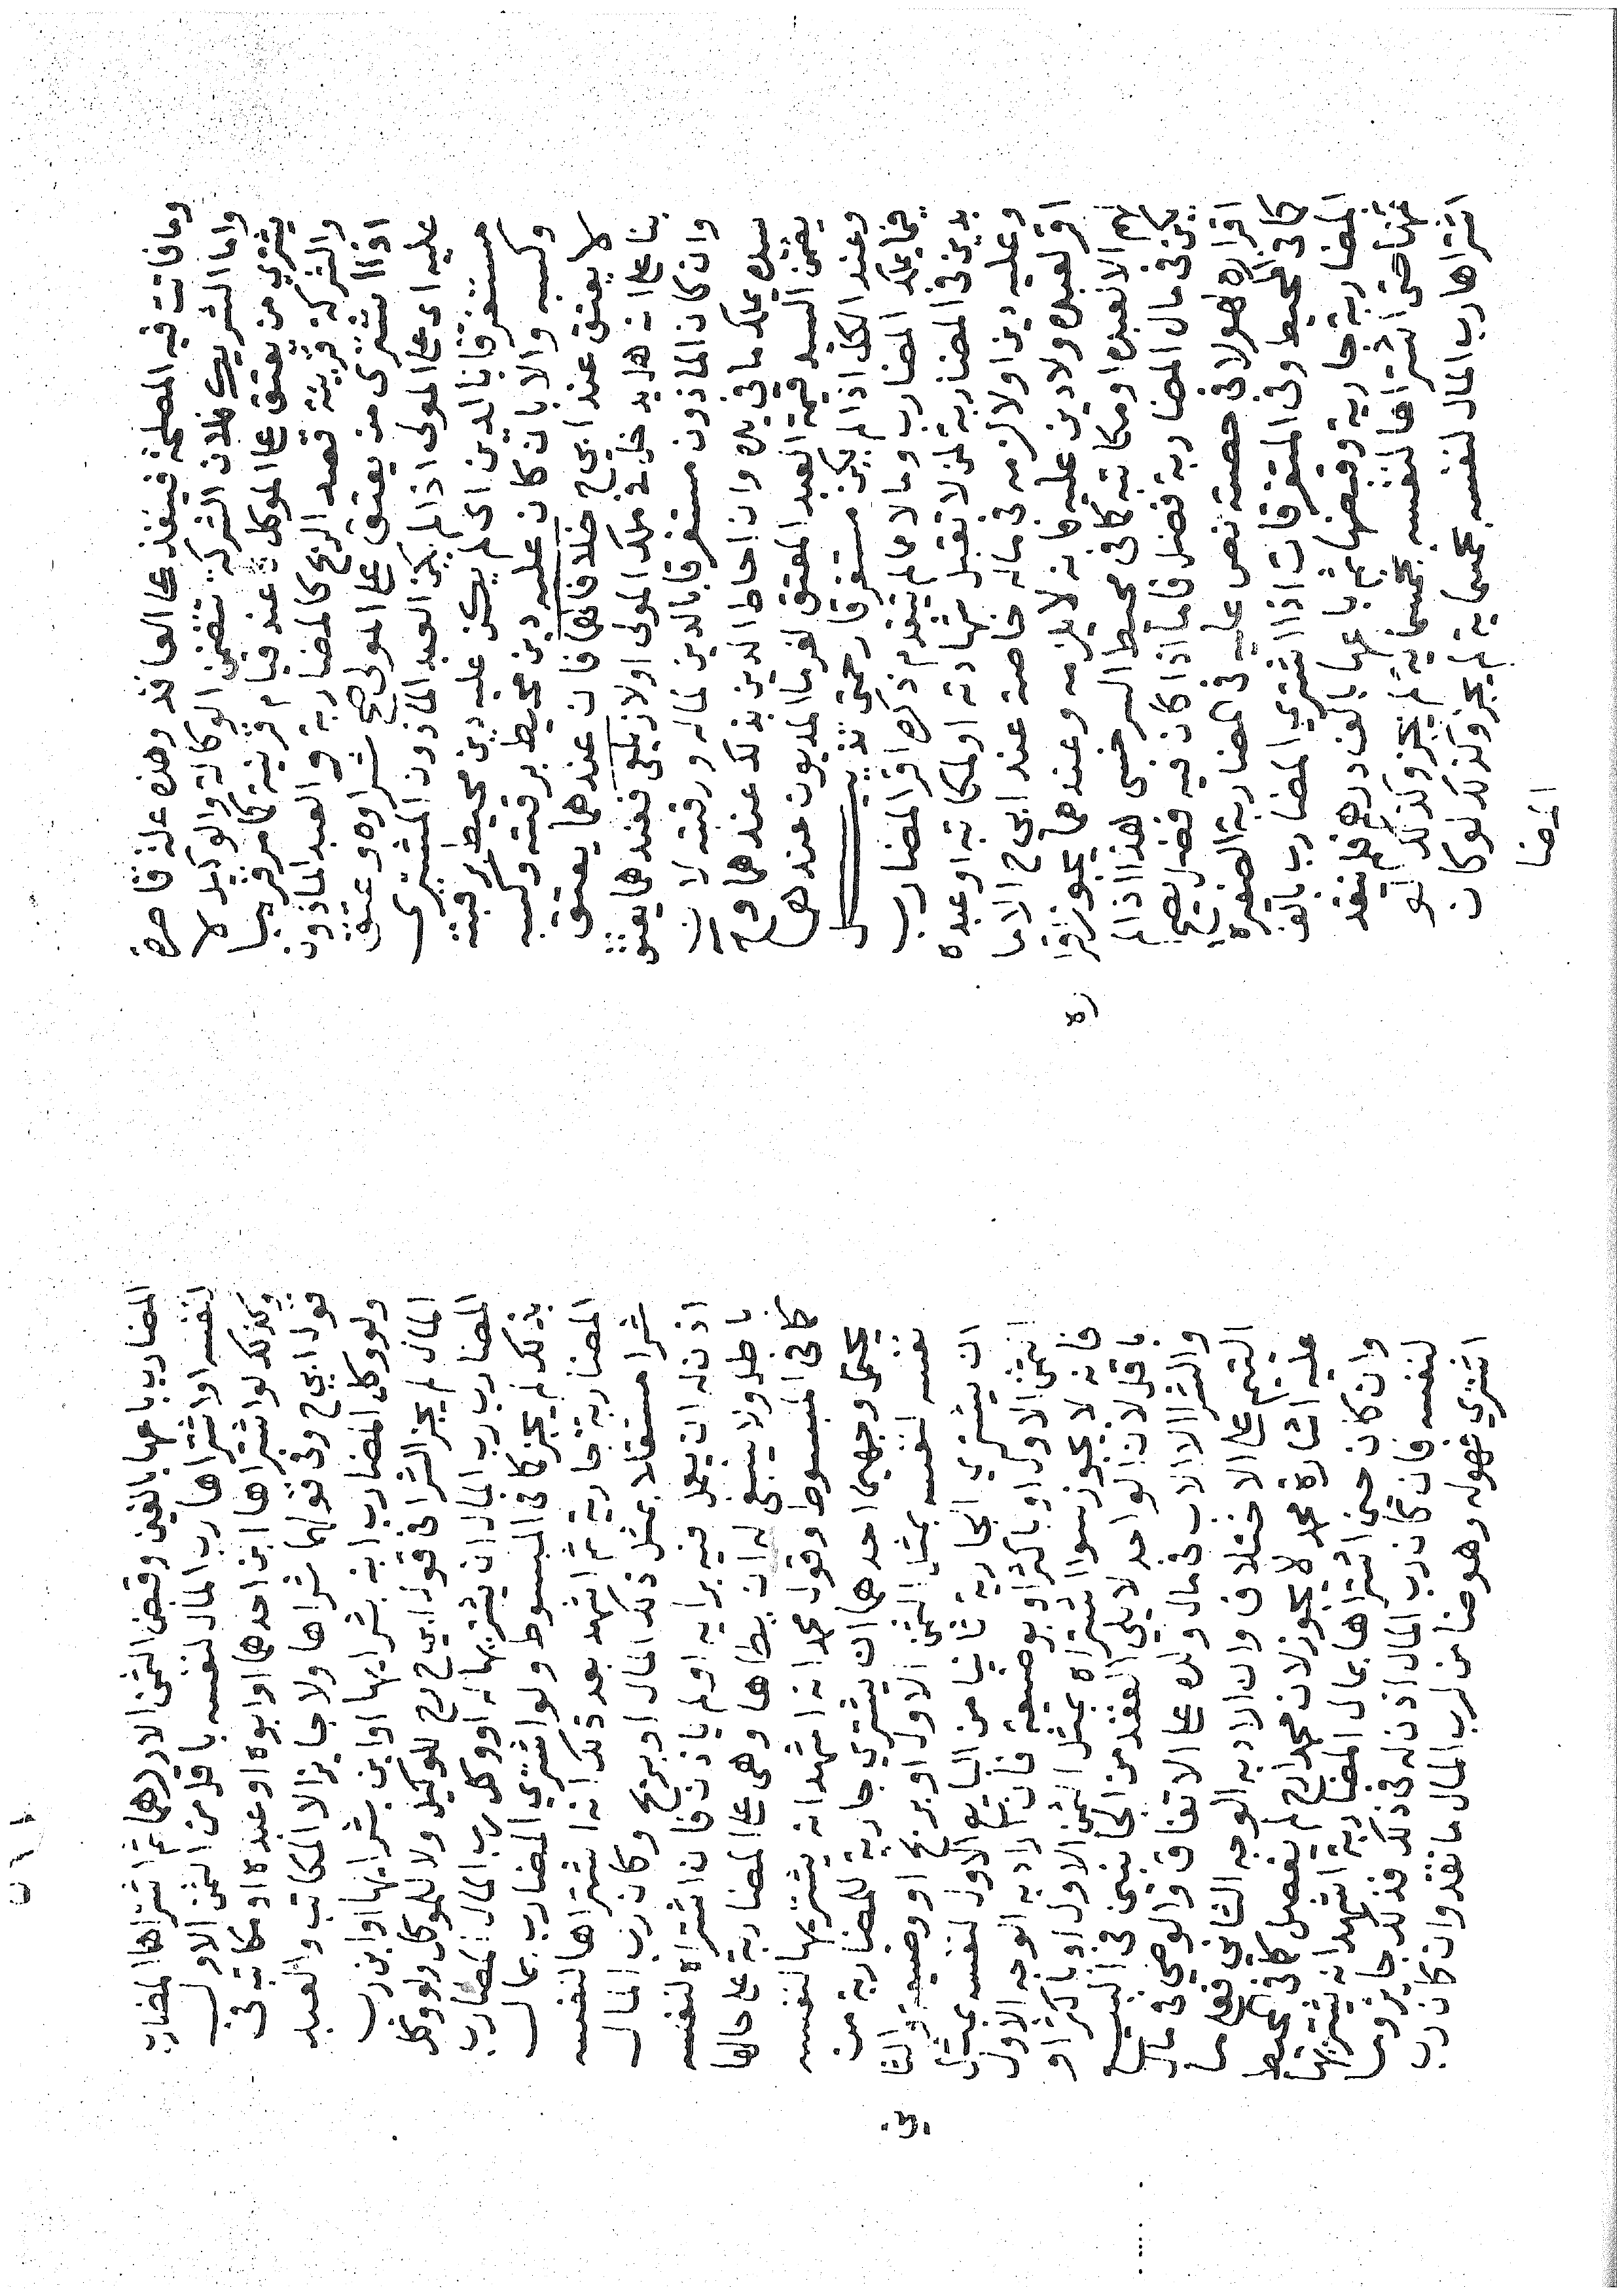 وما فاتت فيه المصلحة فينفذ على العاقد وهذه علة قاصرة
واما الشريك فلان الشركة تتضمن الوكالة والوكيل لا
يشتري من يعتق على الموكل عند قيام قرينة كما مر قريبا
والشركة قرينة قصد الربح كالمضاربة والعبد الماذون
اذا اشترى من يعتق على المولى صح شراوه وعتق
عليه اى على المولى اذا لم يكن العبد الماذون المشترى
مستغرقا بالدين اى لم يكن عليه دين محيط برقبته
وكسبه والا بان كان عليه دين محيط برقبته وكسبه
لا يعتق عند ابى ح خلافا لهما فان عندهما يعتق
بناء على انه هل يدخل في ملك المولى اولا فعندهما يعتق
وان كان الماذون مستغرقا بالدين لماله ورقبته لان
سيده يملك ما في يده وان احاط الدين بذلك عندهما و
يضمن السيد قيمة العبد المعتق لغرما المديون عندهما
وعند الكل اذا لم يكن مستغرقا رحمتى تذييل
فيما يملك المضارب وما لا مما لم يتقدم ذكره اقر المضارب
بدين في المضاربة لمن لا تقبل شهادته او لمكاتبه او عبده
وعليه دين اولا لزمه في ماله خاصة عند ابى ح الا ما
اقر لعبده ولا دين عليه فانه لا يلزمه وعندهما يجوز اقراره
لهم الا لعبده او مكاتبه كافي محيط السرخسى هذا اذا لم
يكن في مال المضاربة فضل فاما اذا كان فيه فضل يصح
اقراره لهولا في حصته نص عليه في المضاربة الصغيرة
كافي المحيط وفي المتفرقات اذا اشتري المضارب بالف
المضاربة جارية وقبضها ثم باعها بالف درهم فلم ينقد
ثمنها حتى اشتراها لنفسه بخمسماية لم يجز وكذلك لو
اشتراها رب المال لنفسه بخمسماية لم يجز وكذلك لو كان
المضا
المضارب باعها بالفين وقبض الثمن الا درهما ثم اشتراها المضارب
لنفسه او اشتراها رب المال لنفسه باقل من الثمن الاول
وكذلك لو اشتراها ابن احدهما او ابوه او عبده او مكاتبه في
قول ابى ح وفي قولهما شراها ولا جايز الا المكاتب والعبد
ولو وكل المضارب ابنه بشرايها او ابن رب
المال لم يجز الشرا في قول ابى ح رح للوكيل ولا للموكل ولو وكل
المضارب رب المال ان يشتريها له او وكل رب المال المضارب
بذلك لم يجز كافي المبسوط ولو اشتري المضارب بمال
المضاربة جارية ثم اشهد بعد ذلك انه اشتراها لنفسه
شرا مستقلا بمثل ذلك المال او بربح وكان رب المال
اذن له ان يعمل فيه برايه او لم ياذن فان اشتراه لنفسه
باطل ولا ينبغى له ان يطاها وهى على المضاربة على حالها
كافي المبسوط وقول محمد انه اشهد انه يشتريها لنفسه
يحتمل وجهين احدهما ان يشتري جارية للمضاربة من
نفسه لنفسه بمثل الثمن الاول او بربح او وضيعة والثا
ان يشتري الجارية ثانيا من البايع الاول لنفسه بمثل
الثمن الاول او باكثر او بوضيعة فان اراد به الوجه الاول
فانه لا يجوز سوا اشتراه بمثل الثمن الاول او باكثر او
باقل لان الواحد لا يلي العقد من الجانبين في البيع
والشرا الا الاب في مال ولده على الاتفاق والوصي في مال
اليتيم على الاختلاف وان اراد به الوجه الثاني فما
عليه اشارة محمد لا يجوز لان محمدا رح لم يفصل كافي المحيط
وان كان حين اشتراها بمال المضاربة اشهد انه يشتريها
لنفسه فان كان رب المال اذن له في ذلك فذلك جايز وما
اشتري فهو له وهو ضامن لرب المال ما نقد وان كان رب